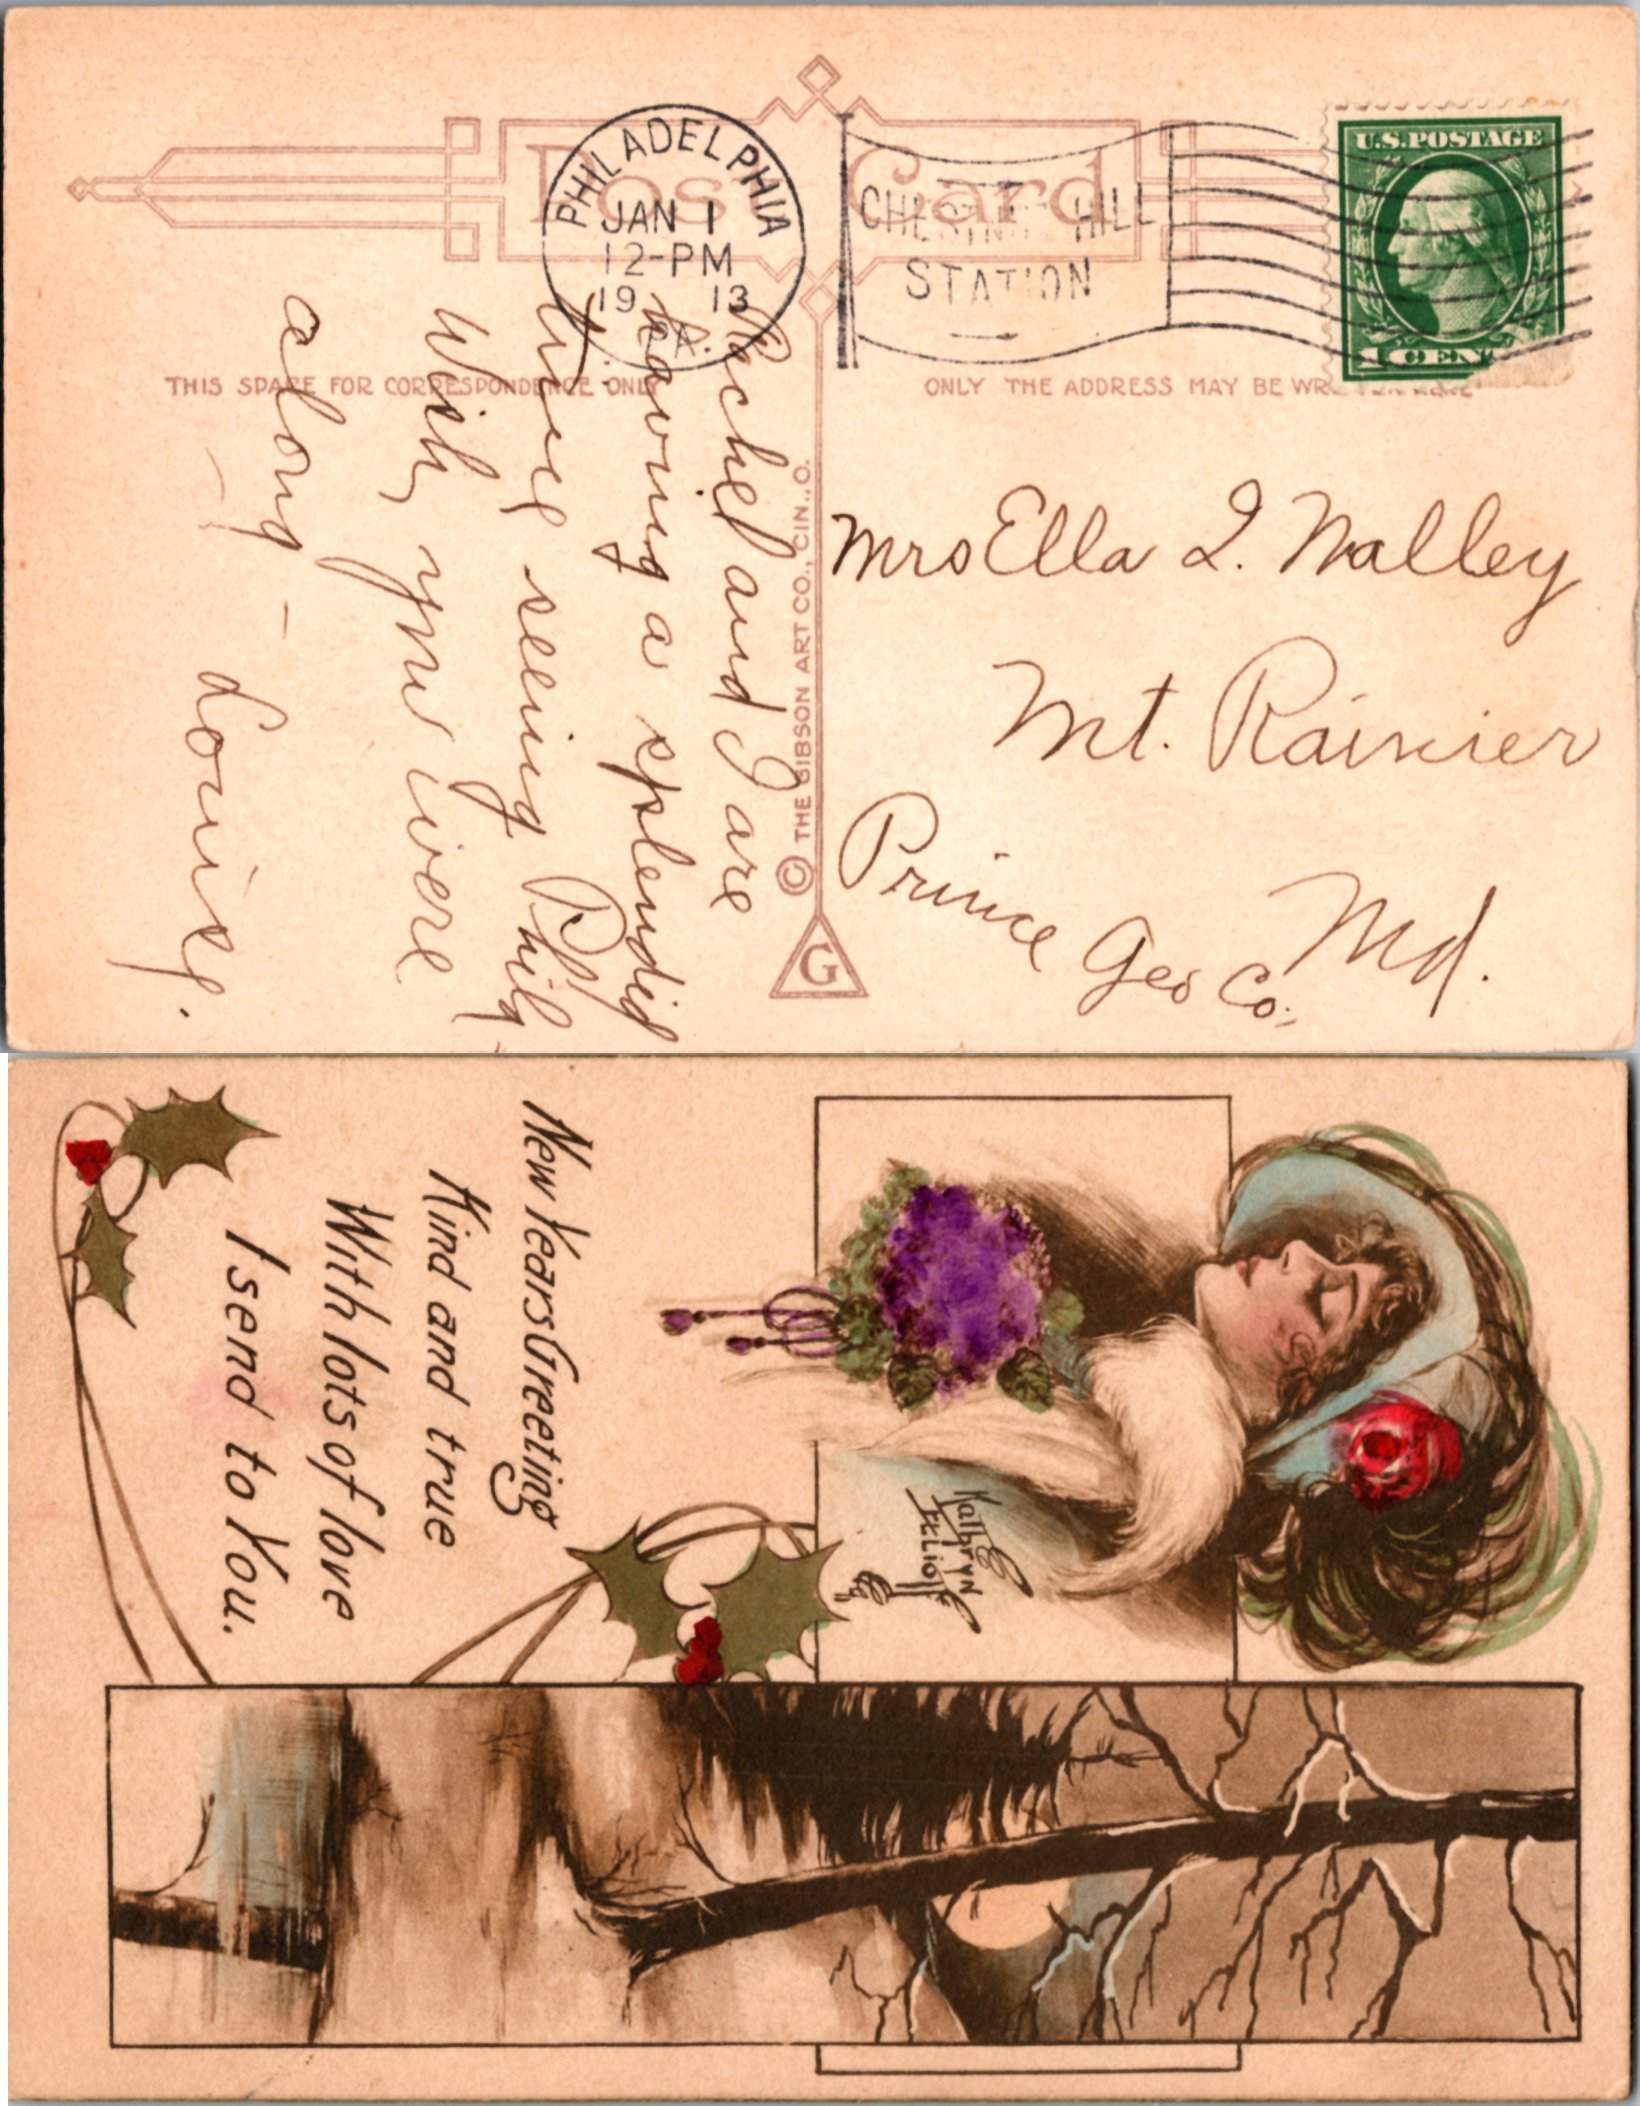 Post Card
PHILADELPHIA
JAN 1
12-PM
19 13
PA.
CHESTNUT HILL
STATION
U.S. POSTAGE
1 CENT
THIS SPACE FOR CORRESPONDENCE ONLY
ONLY THE ADDRESS MAY BE WRITTEN HERE
Rachel and I are
having a splendid
time seeing Phila
Wish you were
along -
Louise.
© THE GIBSON ART CO., CIN., O.
G
Mrs Ella I. Nalley
Mt. Rainier
Prince Geo Co.,
Md.
New Years Greeting
Kind and true
With lots of love
I send to You.
Kathryn
Elliott